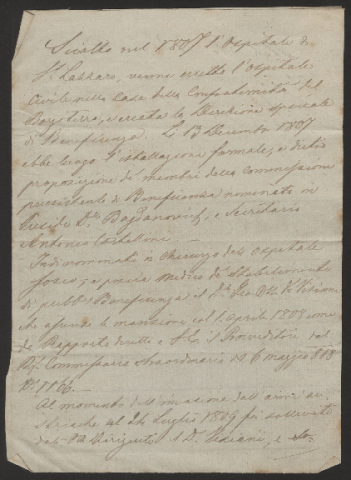 Sciolto nel 1807 l'Ospitale di
S. Lazzaro, venne eretto l'ospitale
Civile nella Casa della Confraternità del
e creata la Direzione speciale
di Beneficenza. Li 13 Decembre 1807
ebbe luogo l'istallazione formale, e dietro
proposizione de' membri della Commissione
preesistente di Beneficenza nominato in
Bogdanovich, e Secretario
Antonio
Indi nominati in Chirurgo dell' Ospitale
e poscia Medico di Stabilimento
di pubb. Beneficenza il Dr.
che assunse le mansioni col 1. Aprile 1808 come
da Rapporto diretto a S. E. il Proveditore dal
Commissario straordinario 6 Maggio 808
N. 1166.
Al momento dell' invasione dell' armi au-
striache del 24 Luglio 1809 fu sollevato
dall' Dirigente il Dr. e